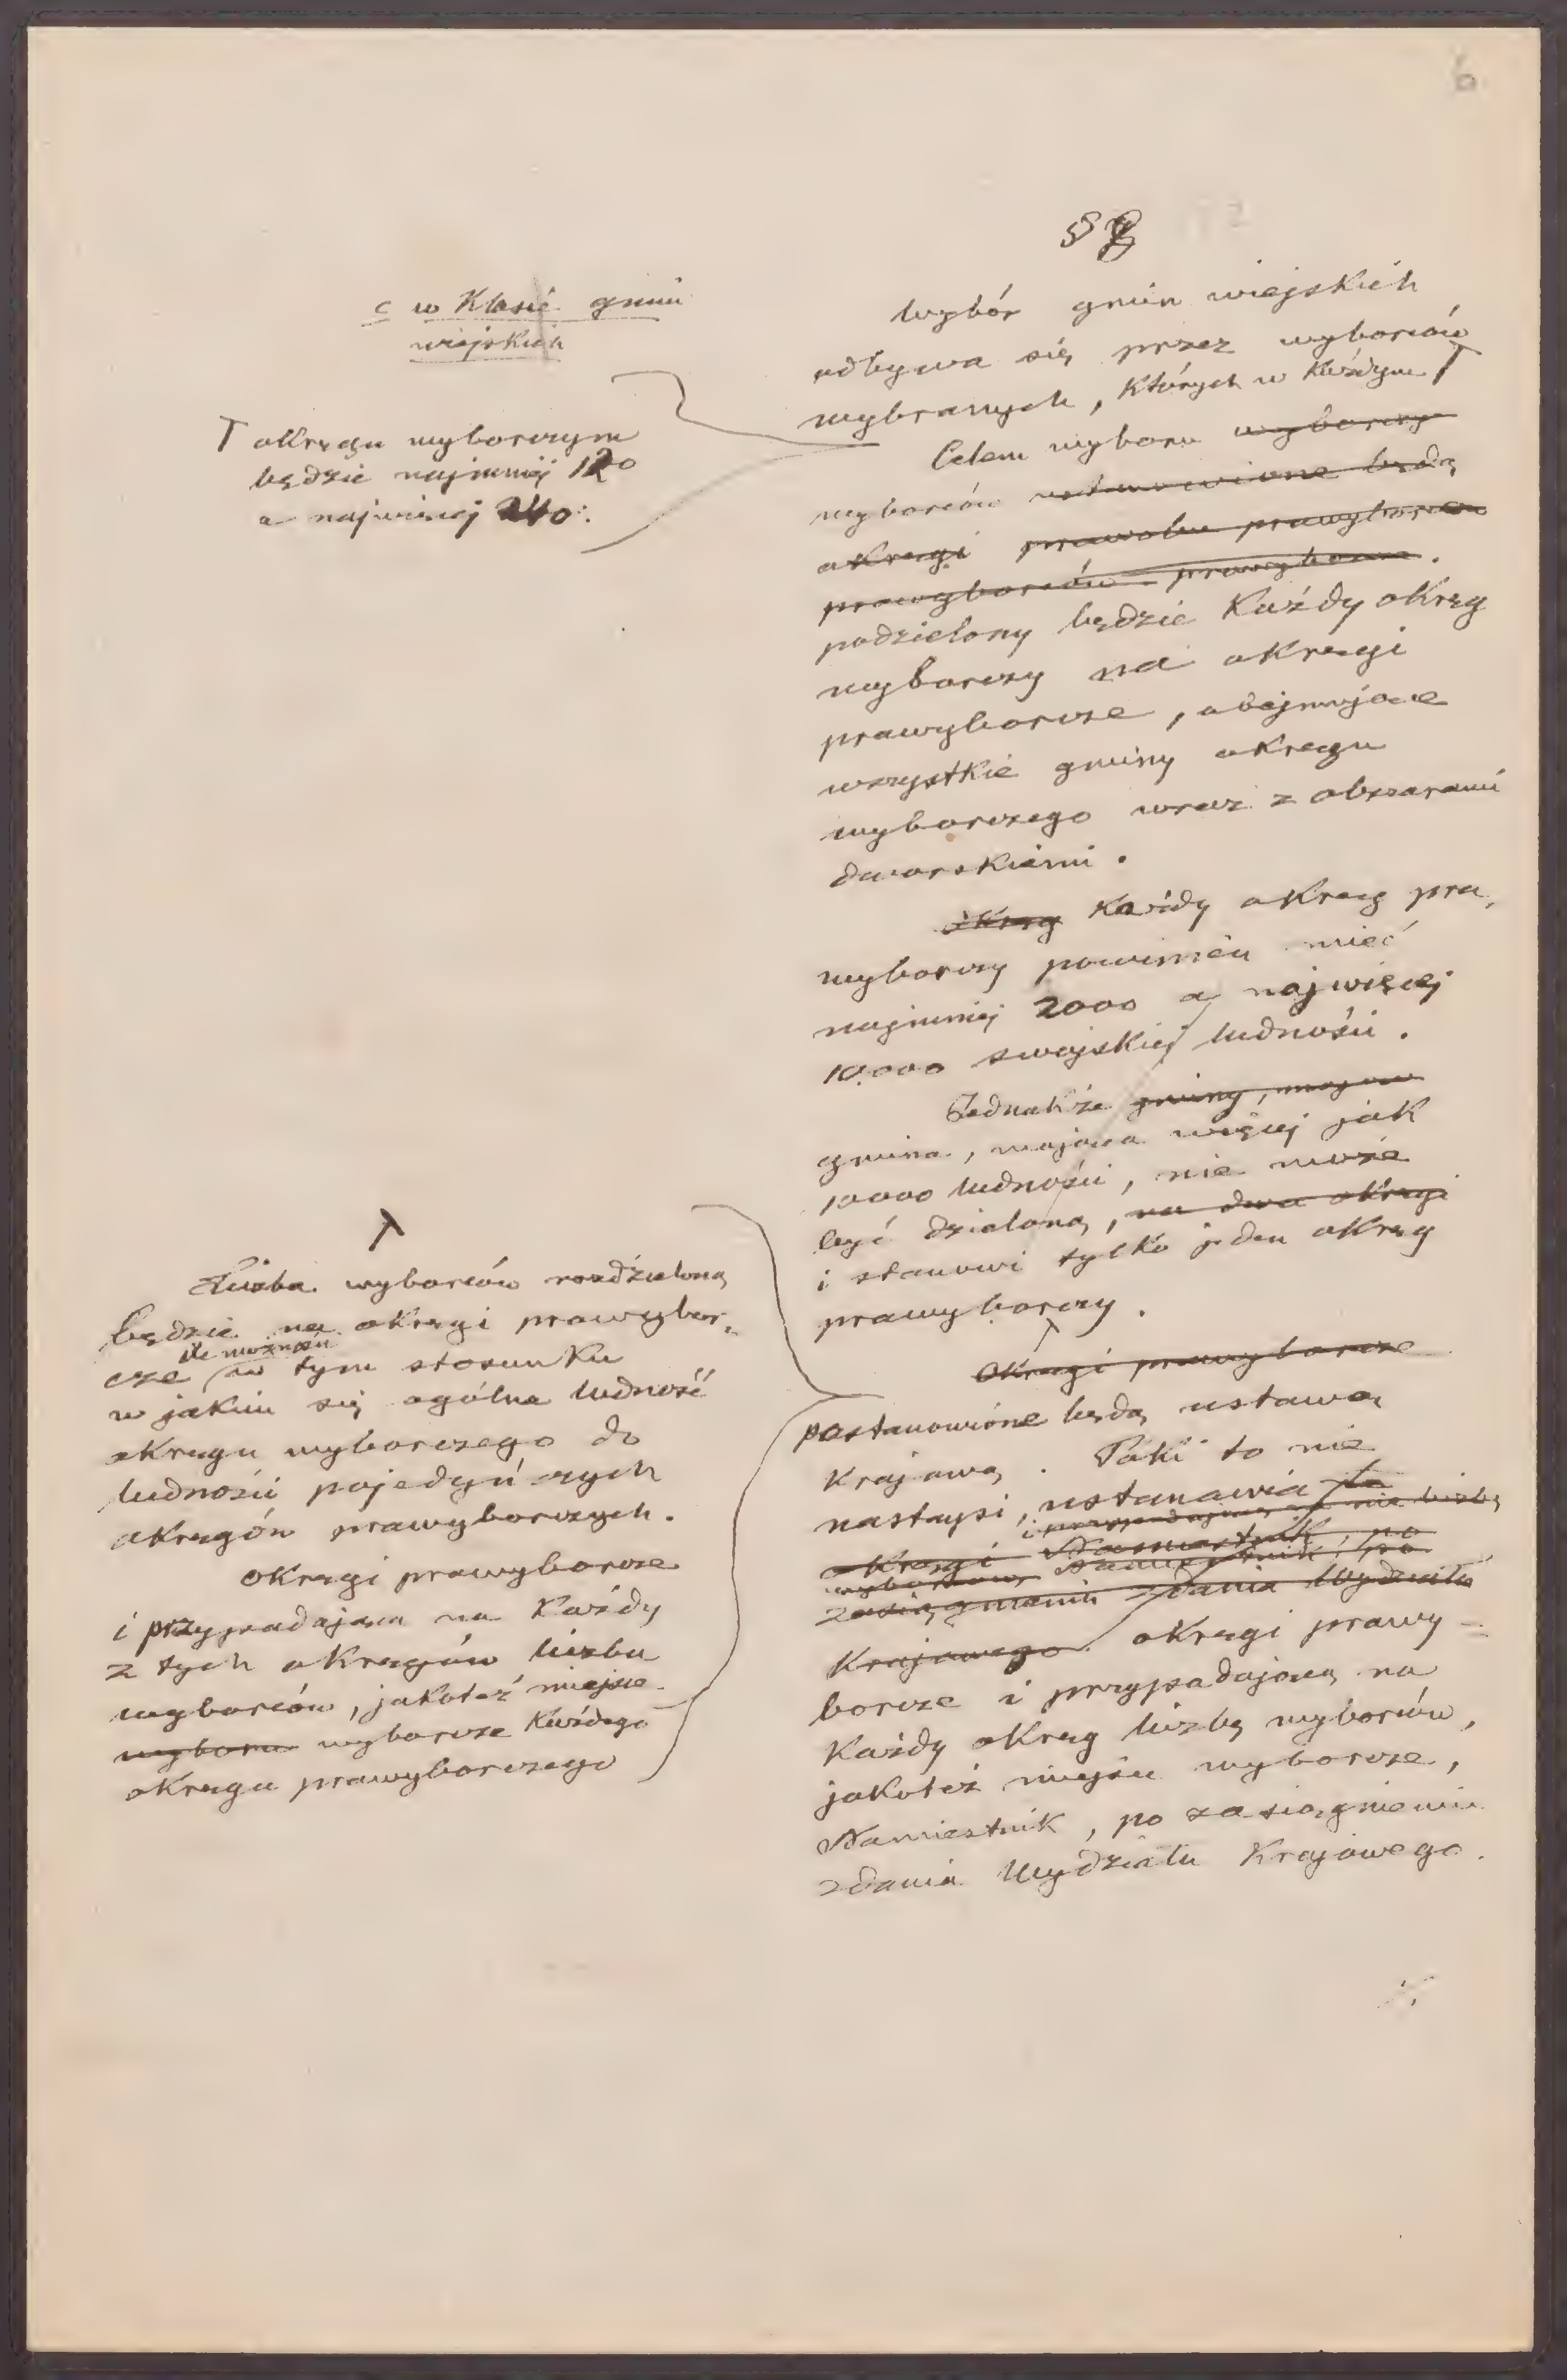 6
§ 8
c w klasie gmin
wiejskich
Wybór gmin wiejskich
odbywa się przez wyborców
wybranych, których w każdym T
T okręgu wyborczym
będzie najmniej 120
a najwięcej 240.
Celem wyboru wyborczy
wyborców ustanowione będą
okręgi prawyborcze
prawyborców prawyborcze.
podzielony będzie każdy okręg
wyborczy na okręgi
prawyborcze, obejmujące
wszystkie gminy okręgu
wyborczego wraz z obszarami
dworskiemi.
okręg każdy okręg pra,
wyborczy powinien mieć
najmniej 2000 a najwięcej
10.000 swojskiej ludności.
Jednakże gminy, mające
gmina, mająca więcej jak
10000 ludności, nie może
być dzieloną, na dwa okręgi
i stanowi tylko jeden okręg
prawyborczy.
T
Liczba wyborców rozdzieloną
będzie na okręgi prawybor,
ile możności
cze w tym stosunku
w jakim się ogólna ludność
okręgu wyborczego do
ludności pojedyńczych
okręgów prawyborczych.
Okręgi prawyborcze
i przypadająca na każdy
z tych okręgów liczba
wyborców, jakoteż miejsce
wyboru wyborcze każdego
okręgu prawyborczego
Okręgi prawyborcze
postanowione będą ustawą
krajową. Póki to nie
nastąpi, ustanawia te
i przypadającą na nie liczbę
okręgi Namiestnik, po
wyborców Namiestnik, po
zasiągnieniu zdania Wydziału
Krajowego. okręgi prawy-
borcze i przypadającą na
każdy okręg liczbę wyborców,
jakoteż miejsce wyborcze,
Namiestnik, po zasiągnieniu
zdania Wydziału Krajowego.